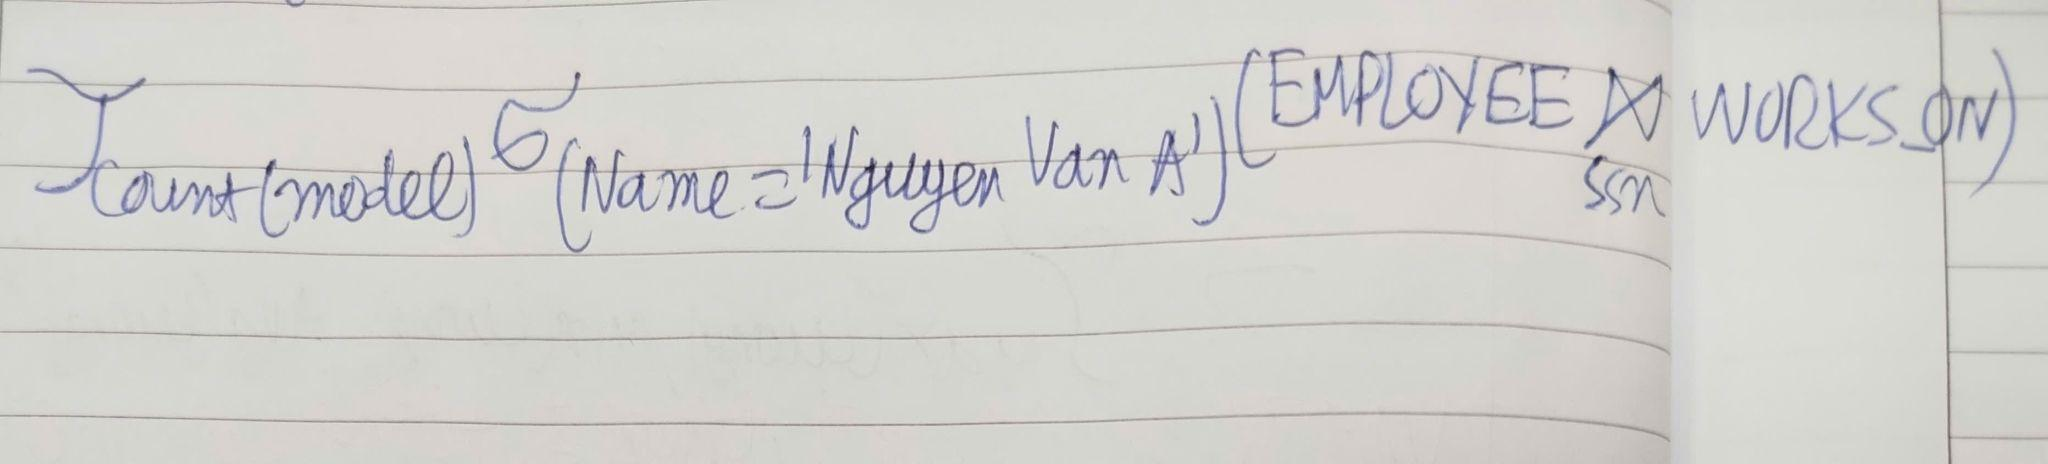 ℑcount(model) σ(Name = 'Nguyen Van A') (EMPLOYEE ⋈ssn WORKS_ON)